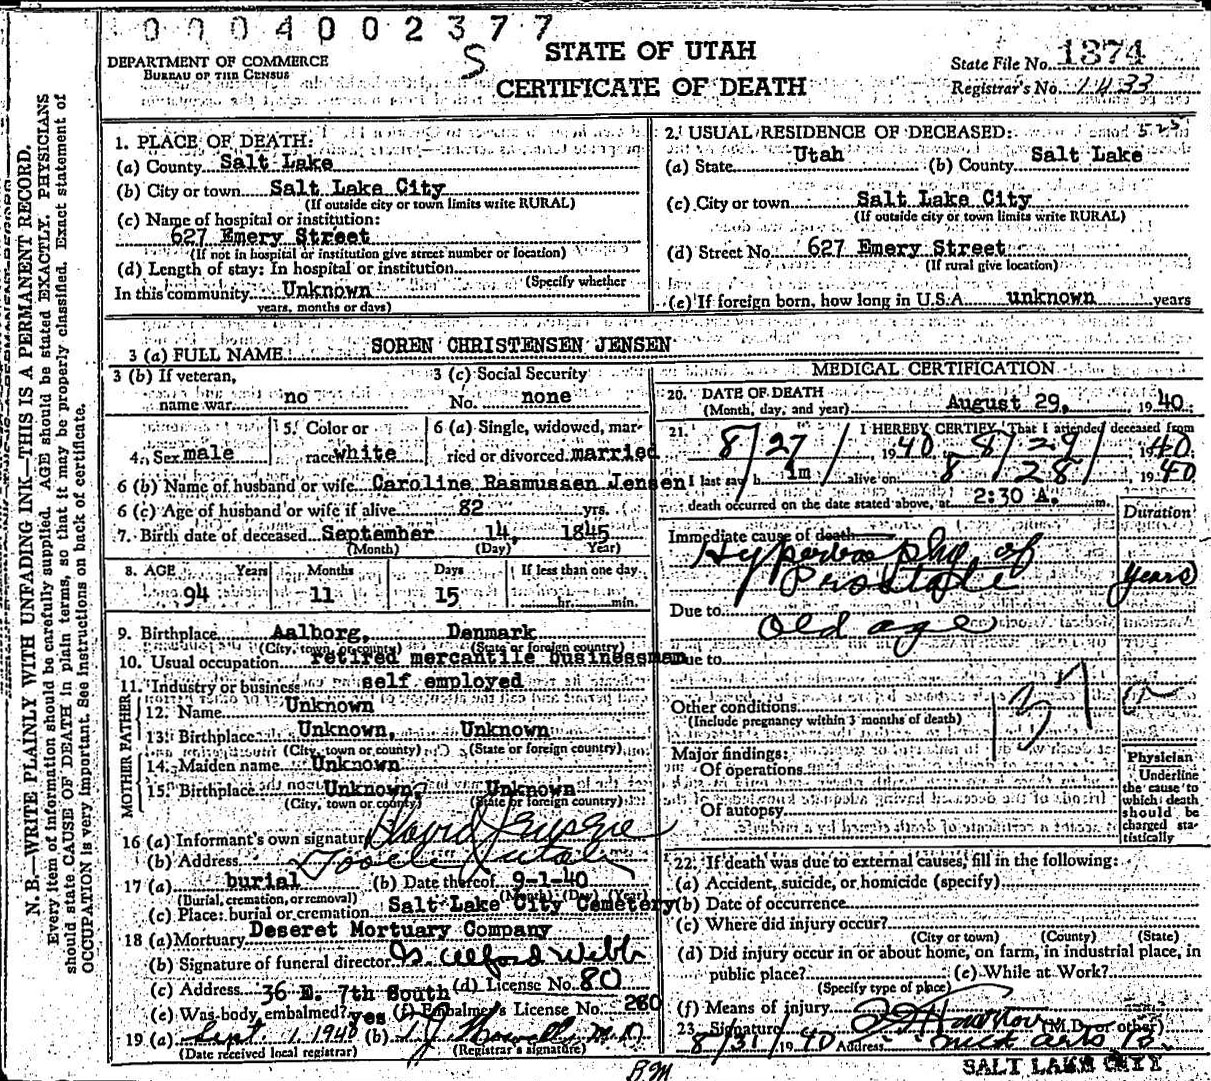 0004002377
S
DEPARTMENT OF COMMERCE
BUREAU OF THE CENSUS
STATE OF UTAH
CERTIFICATE OF DEATH
State File No. 1374
Registrar's No. 1433
N. B.—WRITE PLAINLY WITH UNFADING INK—THIS IS A PERMANENT RECORD.
Every item of information should be carefully supplied. AGE should be stated EXACTLY. PHYSICIANS
should state CAUSE OF DEATH in plain terms, so that it may be properly classified. Exact statement of
OCCUPATION is very important. See instructions on back of certificate.
1. PLACE OF DEATH:
(a) County Salt Lake
(b) City or town Salt Lake City
(If outside city or town limits write RURAL)
(c) Name of hospital or institution:
627 Emery Street
(If not in hospital or institution give street number or location)
(d) Length of stay: In hospital or institution
(Specify whether
In this community Unknown
years, months or days)
2. USUAL RESIDENCE OF DECEASED:
(a) State Utah (b) County Salt Lake
(c) City or town Salt Lake City
(If outside city or town limits write RURAL)
(d) Street No. 627 Emery Street
(If rural give location)
(e) If foreign born, how long in U.S.A. unknown years
3 (a) FULL NAME SOREN CHRISTENSEN JENSEN
3 (b) If veteran,
name war no
3 (c) Social Security
No. none
4. Sex male
5. Color or
race white
6 (a) Single, widowed, mar-
ried or divorced married
6 (b) Name of husband or wife Caroline Rasmussen Jensen
6 (c) Age of husband or wife if alive 82 yrs.
7. Birth date of deceased September 14, 1845
(Month) (Day) Year)
8. AGE Years Months Days If less than one day
94 11 15 hr. min.
9. Birthplace Aalborg, Denmark
(City, town, or county) (State or foreign country)
10. Usual occupation retired mercantile businessman
11. Industry or business self employed
FATHER
12. Name Unknown
13. Birthplace Unknown, Unknown
(City, town or county) (State or foreign country)
MOTHER
14. Maiden name Unknown
15. Birthplace Unknown, Unknown
(City, town or county) (State or foreign country)
16 (a) Informant's own signature David
(b) Address Tooele Utah
17 (a) burial (b) Date thereof 9-1-40
(Burial, cremation, or removal) (Month) (Day) (Year)
(c) Place: burial or cremation Salt Lake City Cemetery
18 (a) Mortuary Deseret Mortuary Company
(b) Signature of funeral director Alford Webb
(c) Address 36 E. 7th South (d) License No. 80
(e) Was body embalmed? yes (f) Embalmer's License No. 260
19 (a) Sept. 1. 1940 (b) M.D.
(Date received local registrar) (Registrar's signature)
MEDICAL CERTIFICATION
20. DATE OF DEATH
(Month, day, and year) August 29, 1940
21. I HEREBY CERTIFY, That I attended deceased from
8/27/ 1940 to 8/29/ 1940
I last saw h im alive on 8/28/ 1940
death occurred on the date stated above, at 2:30 A. m.
Duration
Immediate cause of death
Hypertrophy of
Prostate years
Due to
Old age
Due to
137 a
Other conditions
(Include pregnancy within 3 months of death)
Major findings:
Of operations
Of autopsy
Physician
Underline
the cause to
which death
should be
charged sta-
tistically
22. If death was due to external causes, fill in the following:
(a) Accident, suicide, or homicide (specify)
(b) Date of occurrence
(c) Where did injury occur?
(City or town) (County) (State)
(d) Did injury occur in or about home, on farm, in industrial place, in
public place? (e) While at Work?
(Specify type of place)
(f) Means of injury
23. Signature (M.D. or other)
8/31/1940 Address Med Arts B.
SALT LAKE CITY
B.M.